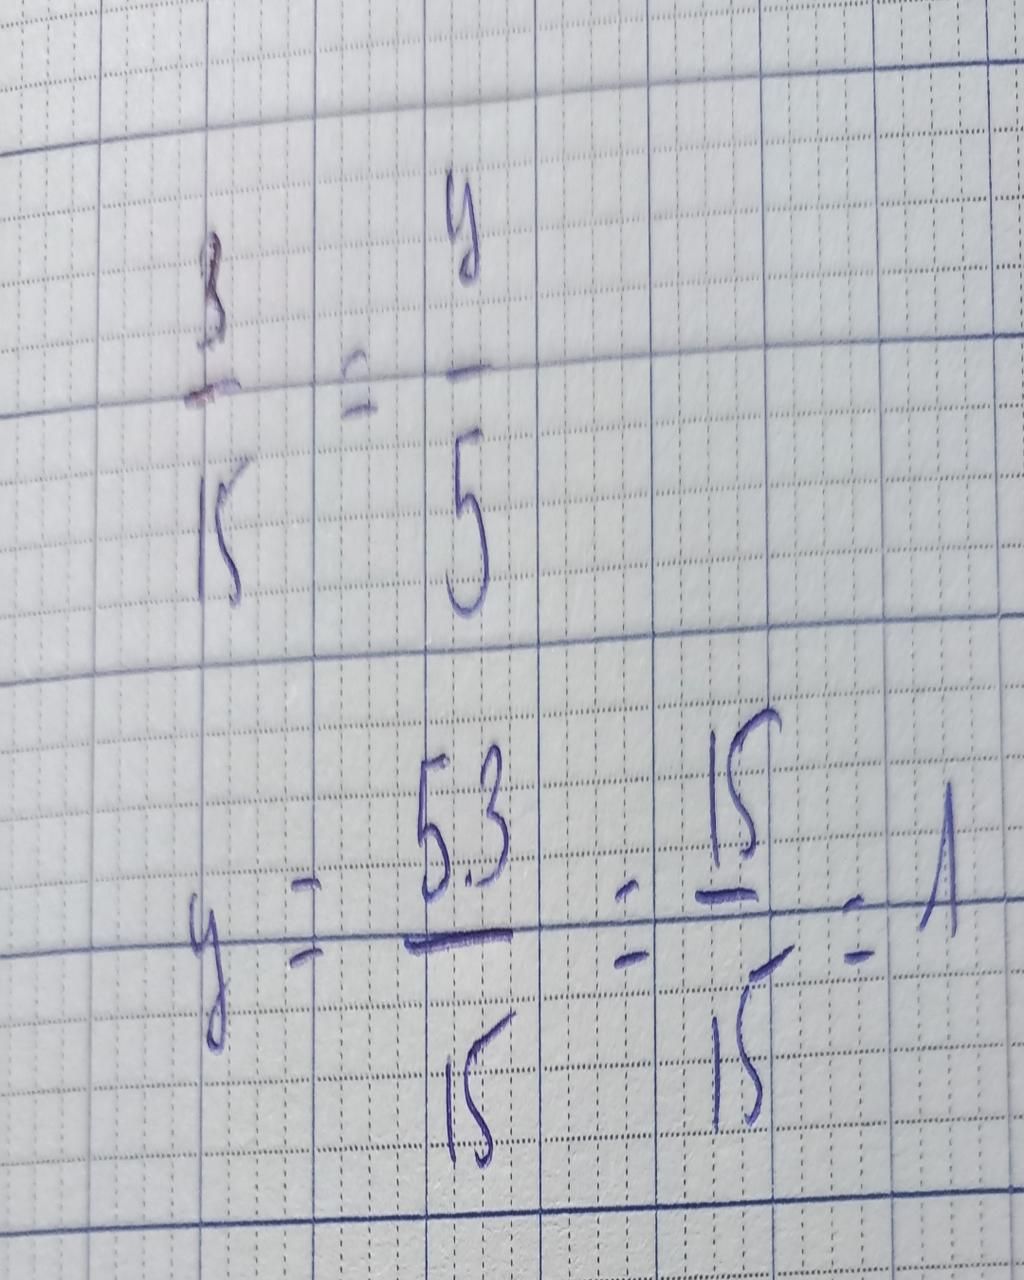 3/15 = y/5
y = 5.3/15 = 15/15 = 1